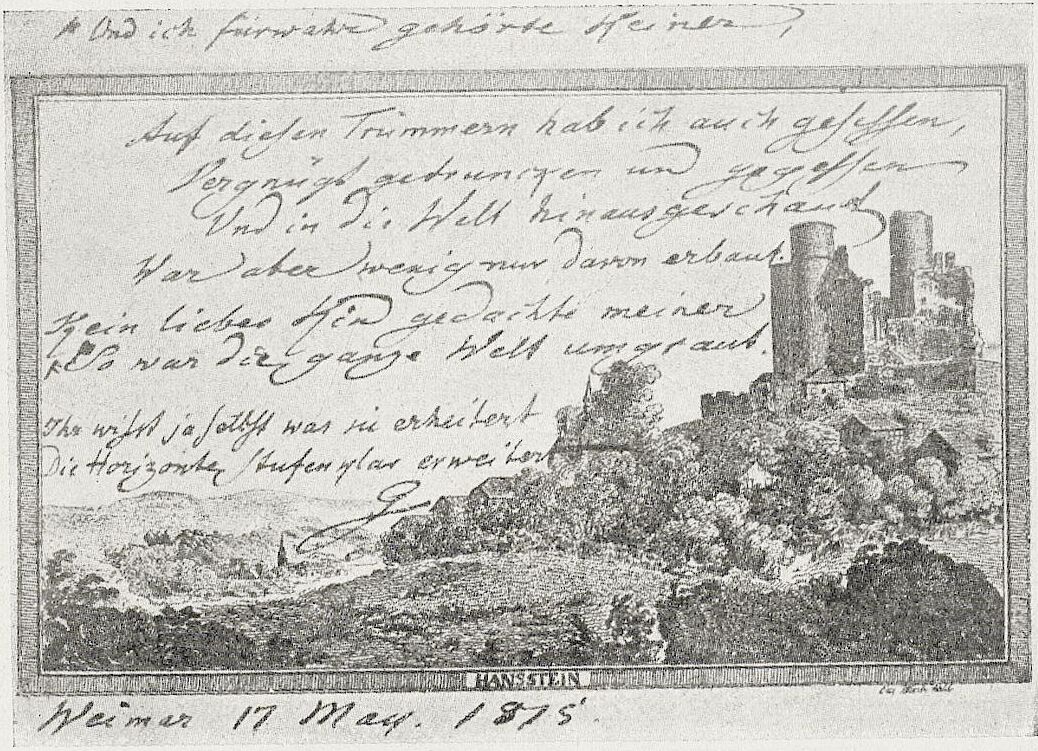 * Und ich fürwahr gehörte Keiner,
Auf diesen Trümmern hab ich auch gesessen,
Vergnügt getruncken und gegessen
Und in die Welt hinausgeschaut
War aber wenig nur davon erbaut.
Kein liebes Kind gedachte meiner
* So war die ganze Welt umgraut.
Ihr wisst ja selbst was sie erheitert
Die Horizonte stufenklar erweitert
G
HANSSTEIN
Weimar 17 May. 1815.